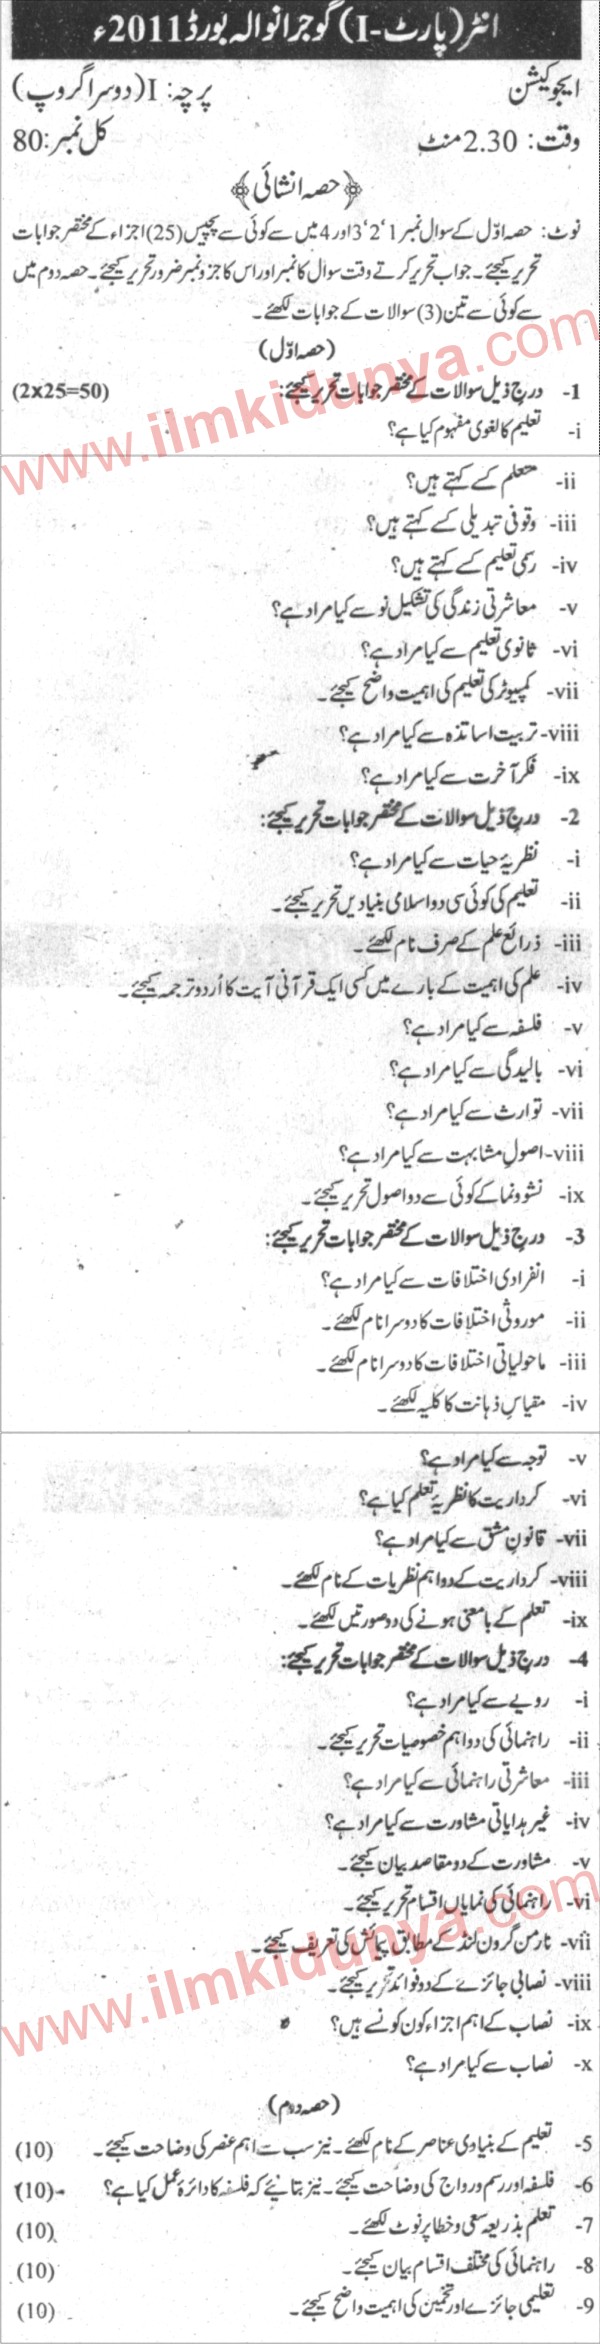 انٹر (پارٹ-I) گوجرانوالہ بورڈ 2011ء
ایجوکیشن
پرچہ: I (دوسرا گروپ)
وقت: 2.30 منٹ
کل نمبر: 80
﴿حصہ انشائی﴾
نوٹ: حصہ اوّل کے سوال نمبر 1، 2، 3 اور 4 میں سے کوئی سے پچیس (25) اجزاء کے مختصر جوابات
تحریر کیجئے۔ جواب تحریر کرتے وقت سوال کا نمبر اور اس کا جزو نمبر ضرور تحریر کیجئے۔ حصہ دوم میں
سے کوئی سے تین (3) سوالات کے جوابات لکھئے۔
(حصہ اوّل)
1- درج ذیل سوالات کے مختصر جوابات تحریر کیجئے: (2x25=50)
i- تعلیم کا لغوی مفہوم کیا ہے؟
www.ilmkidunya.com
ii- متعلم کسے کہتے ہیں؟
iii- وقوفی تبدیلی کسے کہتے ہیں؟
iv- رسمی تعلیم کسے کہتے ہیں؟
v- معاشرتی زندگی کی تشکیل نو سے کیا مراد ہے؟
vi- ثانوی تعلیم سے کیا مراد ہے؟
vii- کمپیوٹر کی تعلیم کی اہمیت واضح کیجئے۔
viii- تربیت اساتذہ سے کیا مراد ہے؟
ix- فکر آخرت سے کیا مراد ہے؟
2- درج ذیل سوالات کے مختصر جوابات تحریر کیجئے:
i- نظریۂ حیات سے کیا مراد ہے؟
ii- تعلیم کی کوئی سی دو اسلامی بنیادیں تحریر کیجئے۔
iii- ذرائع علم کے صرف نام لکھئے۔
iv- علم کی اہمیت کے بارے میں کسی ایک قرآنی آیت کا اُردو ترجمہ کیجئے۔
v- فلسفہ سے کیا مراد ہے؟
vi- بالیدگی سے کیا مراد ہے؟
vii- توارث سے کیا مراد ہے؟
viii- اصول مشابہت سے کیا مراد ہے؟
ix- نشوونما کے کوئی سے دو اصول تحریر کیجئے۔
3- درج ذیل سوالات کے مختصر جوابات تحریر کیجئے:
i- انفرادی اختلافات سے کیا مراد ہے؟
ii- موروثی اختلافات کا دوسرا نام لکھئے۔
iii- ماحولیاتی اختلافات کا دوسرا نام لکھئے۔
iv- مقیاسِ ذہانت کا کلیہ لکھئے۔
v- توجہ سے کیا مراد ہے؟
vi- کرداریت کا نظریۂ تعلم کیا ہے؟
vii- قانونِ مشق سے کیا مراد ہے؟
viii- کرداریت کے دو اہم نظریات کے نام لکھئے۔
ix- تعلم کے بامعنی ہونے کی دو صورتیں لکھئے۔
4- درج ذیل سوالات کے مختصر جوابات تحریر کیجئے:
i- رویے سے کیا مراد ہے؟
ii- راہنمائی کی دو اہم خصوصیات تحریر کیجئے۔
iii- معاشرتی راہنمائی سے کیا مراد ہے؟
iv- غیر ہدایاتی مشاورت سے کیا مراد ہے؟
v- مشاورت کے دو مقاصد بیان کیجئے۔
vi- راہنمائی کی نمایاں اقسام تحریر کیجئے۔
vii- نارمن گرون لنڈ کے مطابق پیمائش کی تعریف کیجئے۔
viii- نصابی جائزے کے دو فوائد تحریر کیجئے۔
www.ilmkidunya.com
ix- نصاب کے اہم اجزاء کون کونسے ہیں؟
x- نصاب سے کیا مراد ہے؟
(حصہ دوم)
5- تعلیم کے بنیادی عناصر کے نام لکھئے۔ نیز سب سے اہم عنصر کی وضاحت کیجئے۔ (10)
6- فلسفہ اور رسم و رواج کی وضاحت کیجئے۔ نیز بتائیے کہ فلسفہ کا دائرہ عمل کیا ہے؟ (10)
7- تعلم بذریعہ سعی و خطا پر نوٹ لکھئے۔ (10)
8- راہنمائی کی مختلف اقسام بیان کیجئے۔ (10)
9- تعلیمی جائزے اور تخمین کی اہمیت واضح کیجئے۔ (10)